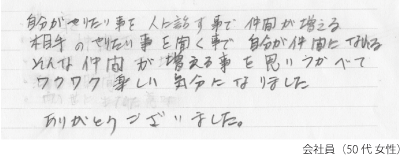 自分がやりたい事を人に話す事で仲間が増える
相手のやりたい事を聞く事で自分が仲間になれる
そんな仲間が増える事を思いうかべて
ワクワク楽しい気分になりました
ありがとうございました。
会社員（50代女性）